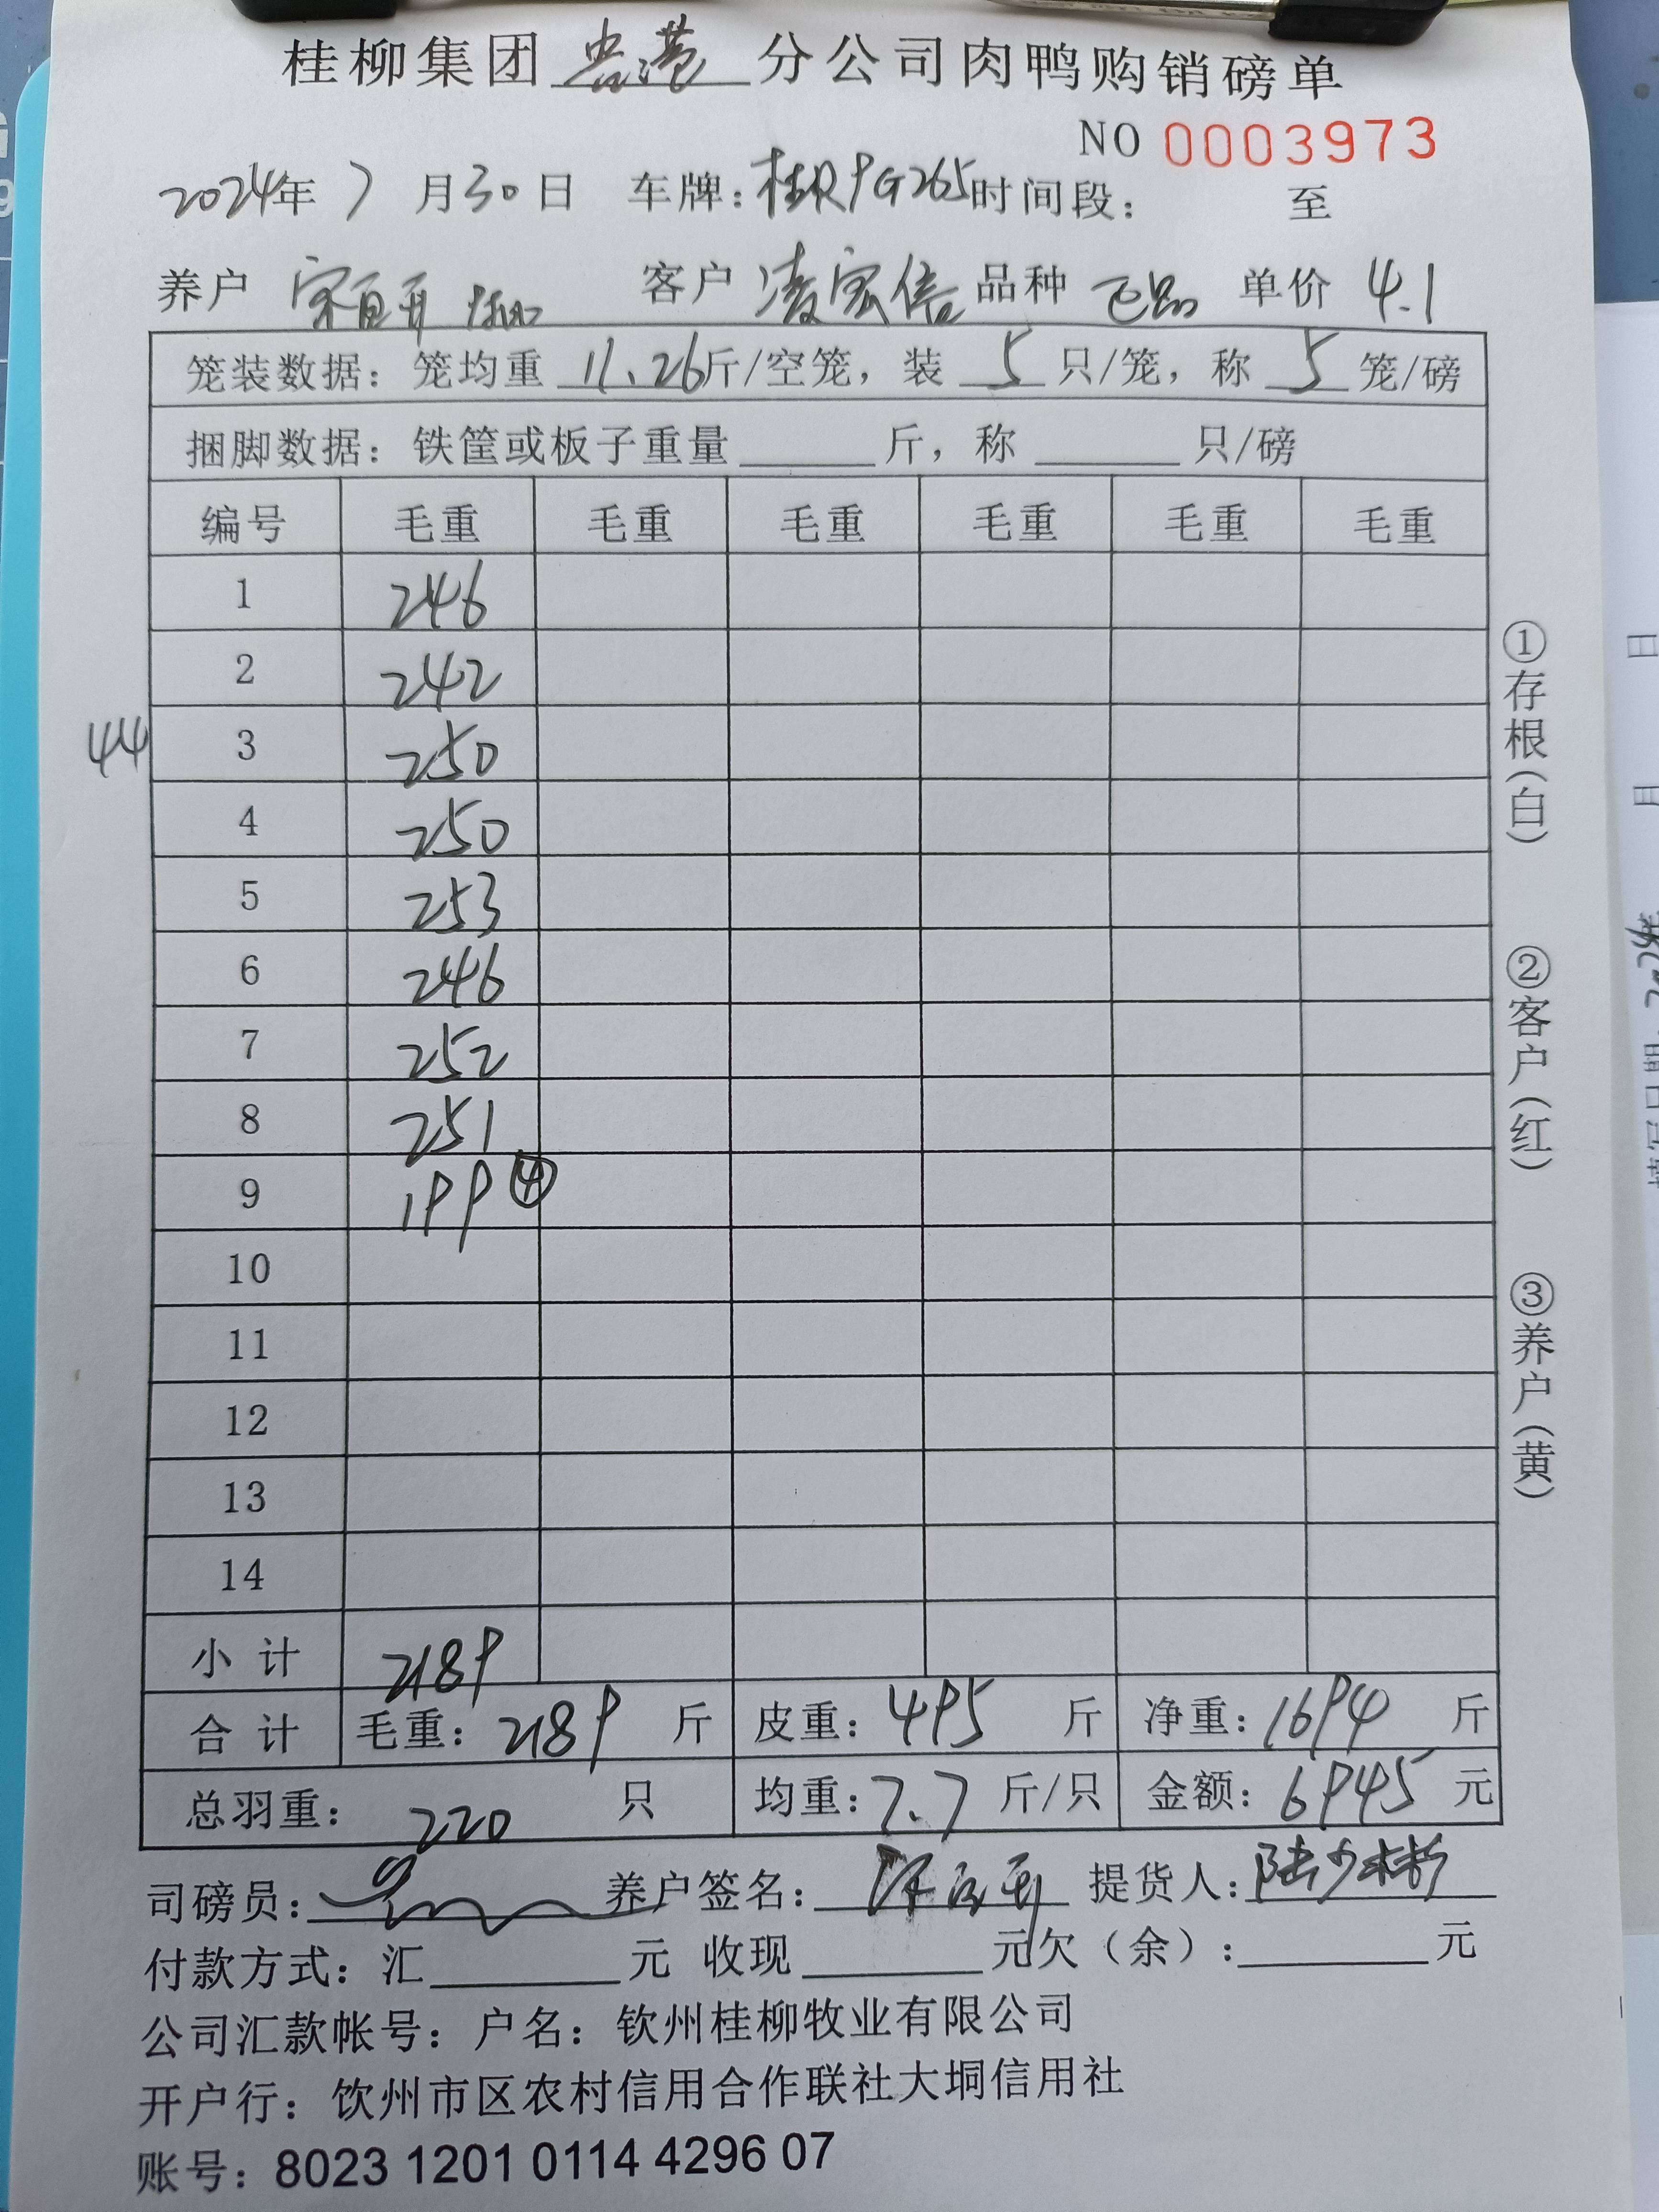 桂柳集团贵港分公司肉鸭购销磅单
NO 0003973
2024年7月30日 车牌：桂R9G265 时间段： 至
养户 客户 凌宏信 品种 单价 4.1
笼装数据：笼均重 11.26斤/空笼，装 5 只/笼，称 5 笼/磅
捆脚数据：铁筐或板子重量 斤，称 只/磅
编号 毛重 毛重 毛重 毛重 毛重 毛重
1 246
2 242
44 3 250
4 250
5 253
6 246
7 252
8 251
9 199 ④
10
11
12
13
14
小计 2189
合计 毛重：2189 斤 皮重：495 斤 净重：1694 斤
总羽重：220 只 均重：7.7 斤/只 金额：6945 元
司磅员： 养户签名： 提货人：陆少彬
付款方式：汇 元 收现 元欠（余）： 元
公司汇款帐号：户名：钦州桂柳牧业有限公司
开户行：钦州市区农村信用合作联社大垌信用社
账号：8023 1201 0114 4296 07
①存根（白）
②客户（红）
③养户（黄）